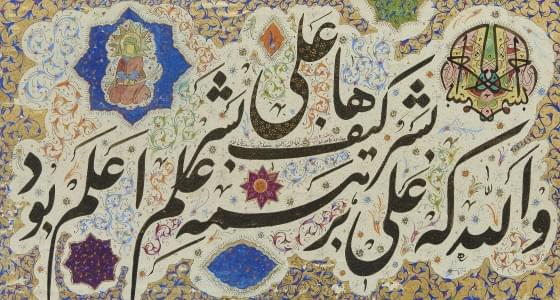 ها علی بشر کیف بشر
والله که علی بر همه علم اعلم بود